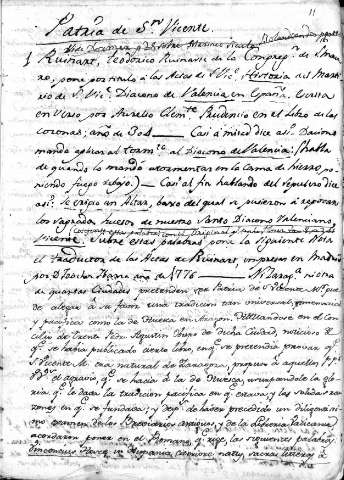 11
Patria de Sn. Vicente.
Ruinart, Teodorico Ruinart de la Congregn. de Mau-
ro, pone por titulo a las Actas de Sn. Vic. Historia del Marti-
rio de Sn. Vic. Diacono de Valencia en España. Escrita
en Verso por Aurelio Clemte. Prudencio en el Libro de las
coronas: año de 304 — Casi á mitad dice asi: Daciano
mandó aplicar al tormto. al Diacono de Valencia: (habla
de quando lo mandó atormentar en la cama de hierro, po-
niendo fuego debajo) — Casi al fin hablando del sepulcro dice
asi: Se erigio un Altar, baxo del qual se pusieron á reposar
los sagrados huesos de nuestro Santo Diacono Valenciano,
Vicente. Sobre estas palabras pone la siguiente Nota
el traductor de las Actas de Ruinart, impresas en Madrid
por Dn. Joachin Ibarra año de 1776 — Ni Zaragoza ni otra
de quantas Ciudades pretenden ser Patria de Sn. Vicente Mr. pue-
de alegar á su favor una tradicion tan universal, inmemorial
y pacifica como la de Huesca en Aragon. Hallandose en el Con-
cilio de Trento Dn. Pedro Agustin Obispo de dicha Ciudad, noticioso de
qe. se habia publicado cierto libro, en qe. se pretendia provar qe.
Sn. Vicente M. era natural de Zaragoza, propuso á aquellos
PPs. el agravio, qe. se hacia á la de Huesca, usurpandole la glo-
ria qe. le daba la tradicion pacifica en qe. estava; y las solidas ra-
zones en qe. se fundaba; y despues de haber precedido un diligentisi-
mo examen de los Breviarios antiguos, y de la Libreria Vaticana
acordaron poner en el Romano, qe. rige, las siguientes palabras
Vincentius Oscae in Hispania citeriore natus, sacris litteris